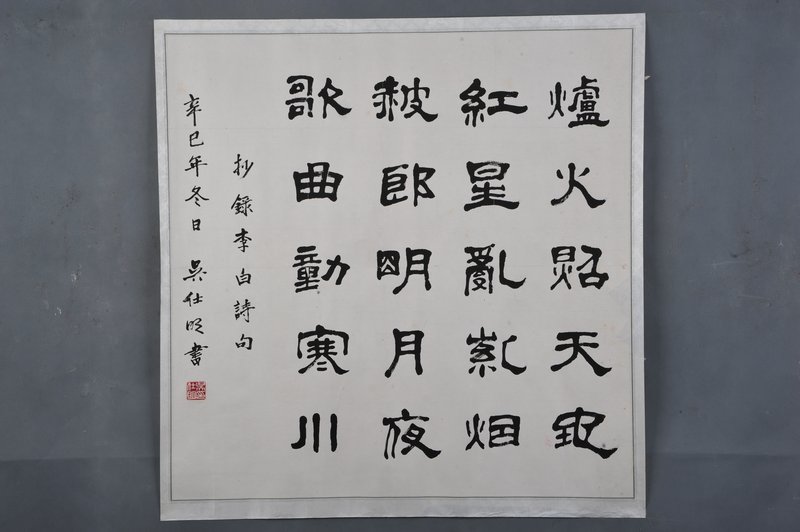 爐火照天地
紅星亂紫烟
赧郎明月夜
歌曲動寒川
抄錄李白詩句
辛巳年冬日 吳仕明書